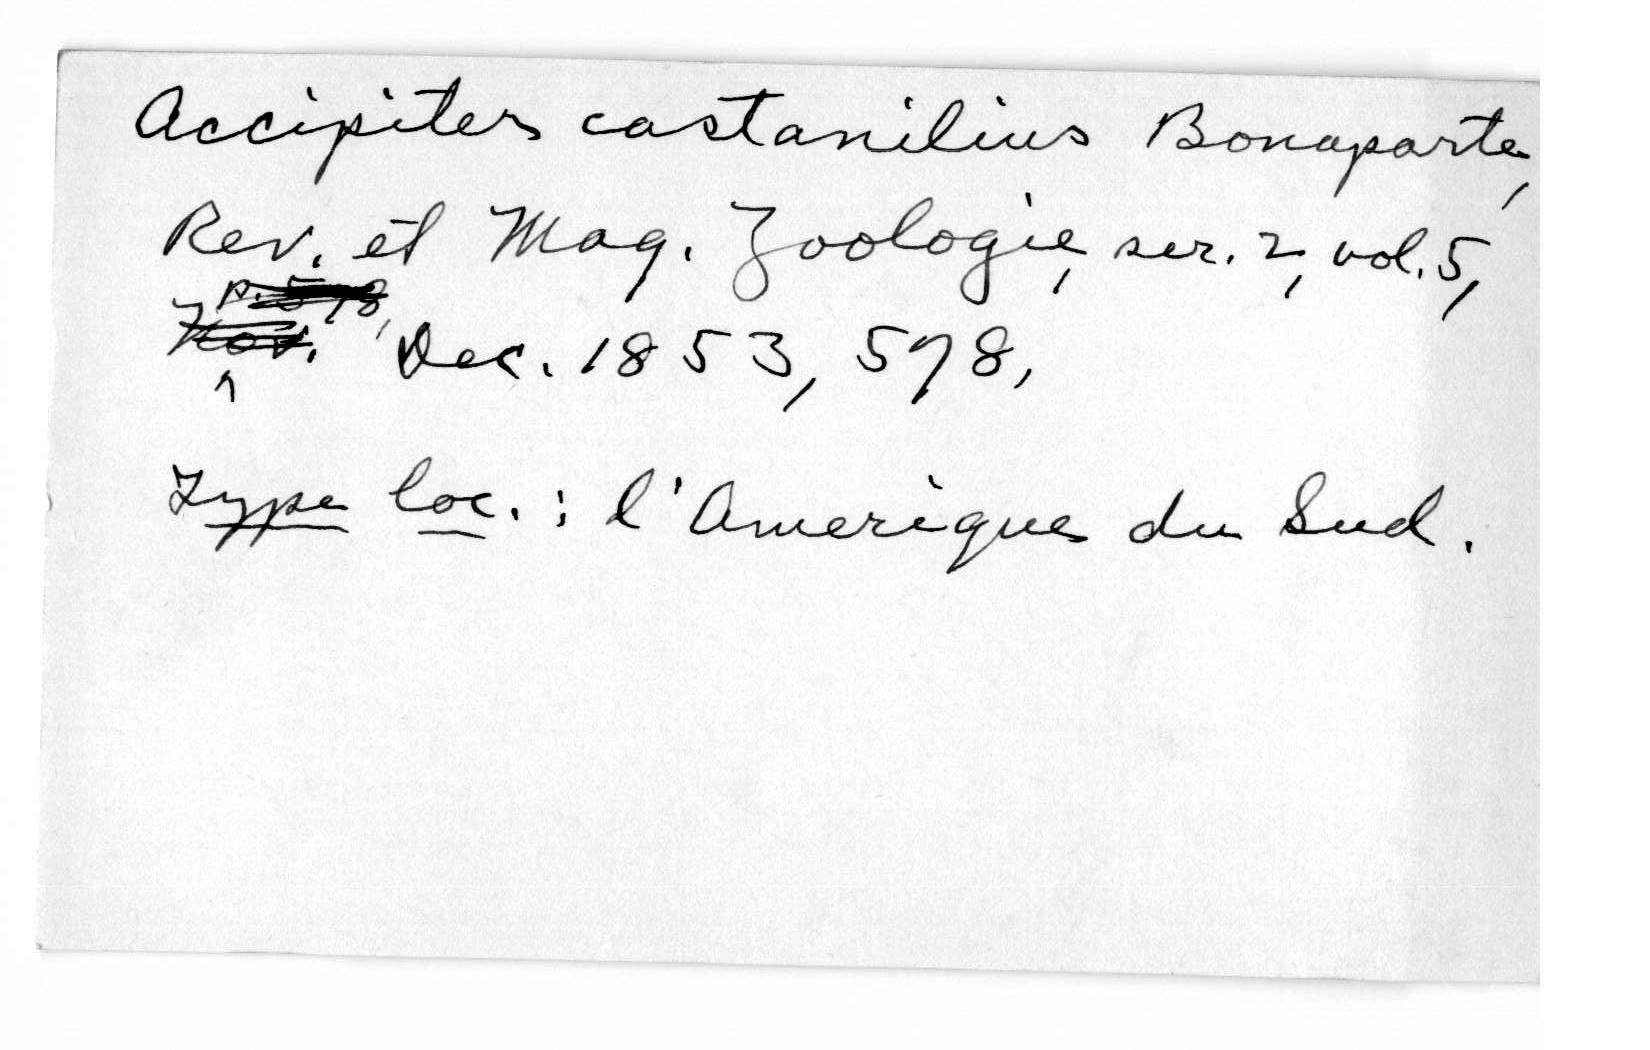 Accipiter castanilius Bonaparte,
Rev. et Mag. Zoologie, ser. 2, vol. 5,
p. 578,
Nov. Dec. 1853, 578,
Type loc. : l'Amerique du Sud.